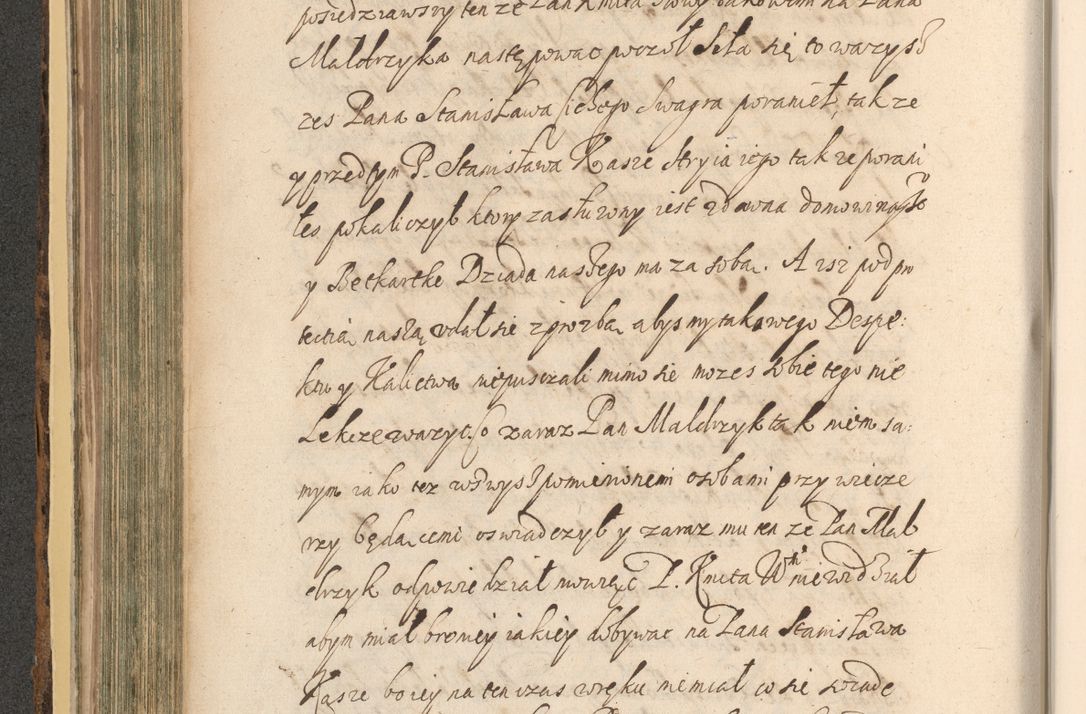 posiedziawszy ten ze Pan Kmita słowy takowemi na Pana
Maldrzyka następować począł Siła się to waszyś
zes Pana Stanisława Siebego Swagra poranieł, tak ze
y przedtym P. Stanisława Kasze Stryia iego także porani
łes pokaliczył ktory zasłuzony iest zdawna domowi naszo
y Betkartkę Dziada naszego ma za sobą. A isz pod pro
tectią naszą vdał się z prozbą abysmy takowego Despe:
ktu y Kalictwa niepuszczali mimo się mozes sobie tego nie
Lekce wazyc. Co zaraz Pan Maldrzyk tak niem sa:
mym iako tez wszwysz pomienionemi osobami przy wiecze
rzy będącemi oswiadczył y zaraz mu ten ze Pan Mal
drzyk odpowiedział mowiąc P. Kmita Wm niewidział
abym miał broniey iakiey dobywac na Pana Stanisława
Kasze bo iey na ten czas w ręku nie miał co się sciade